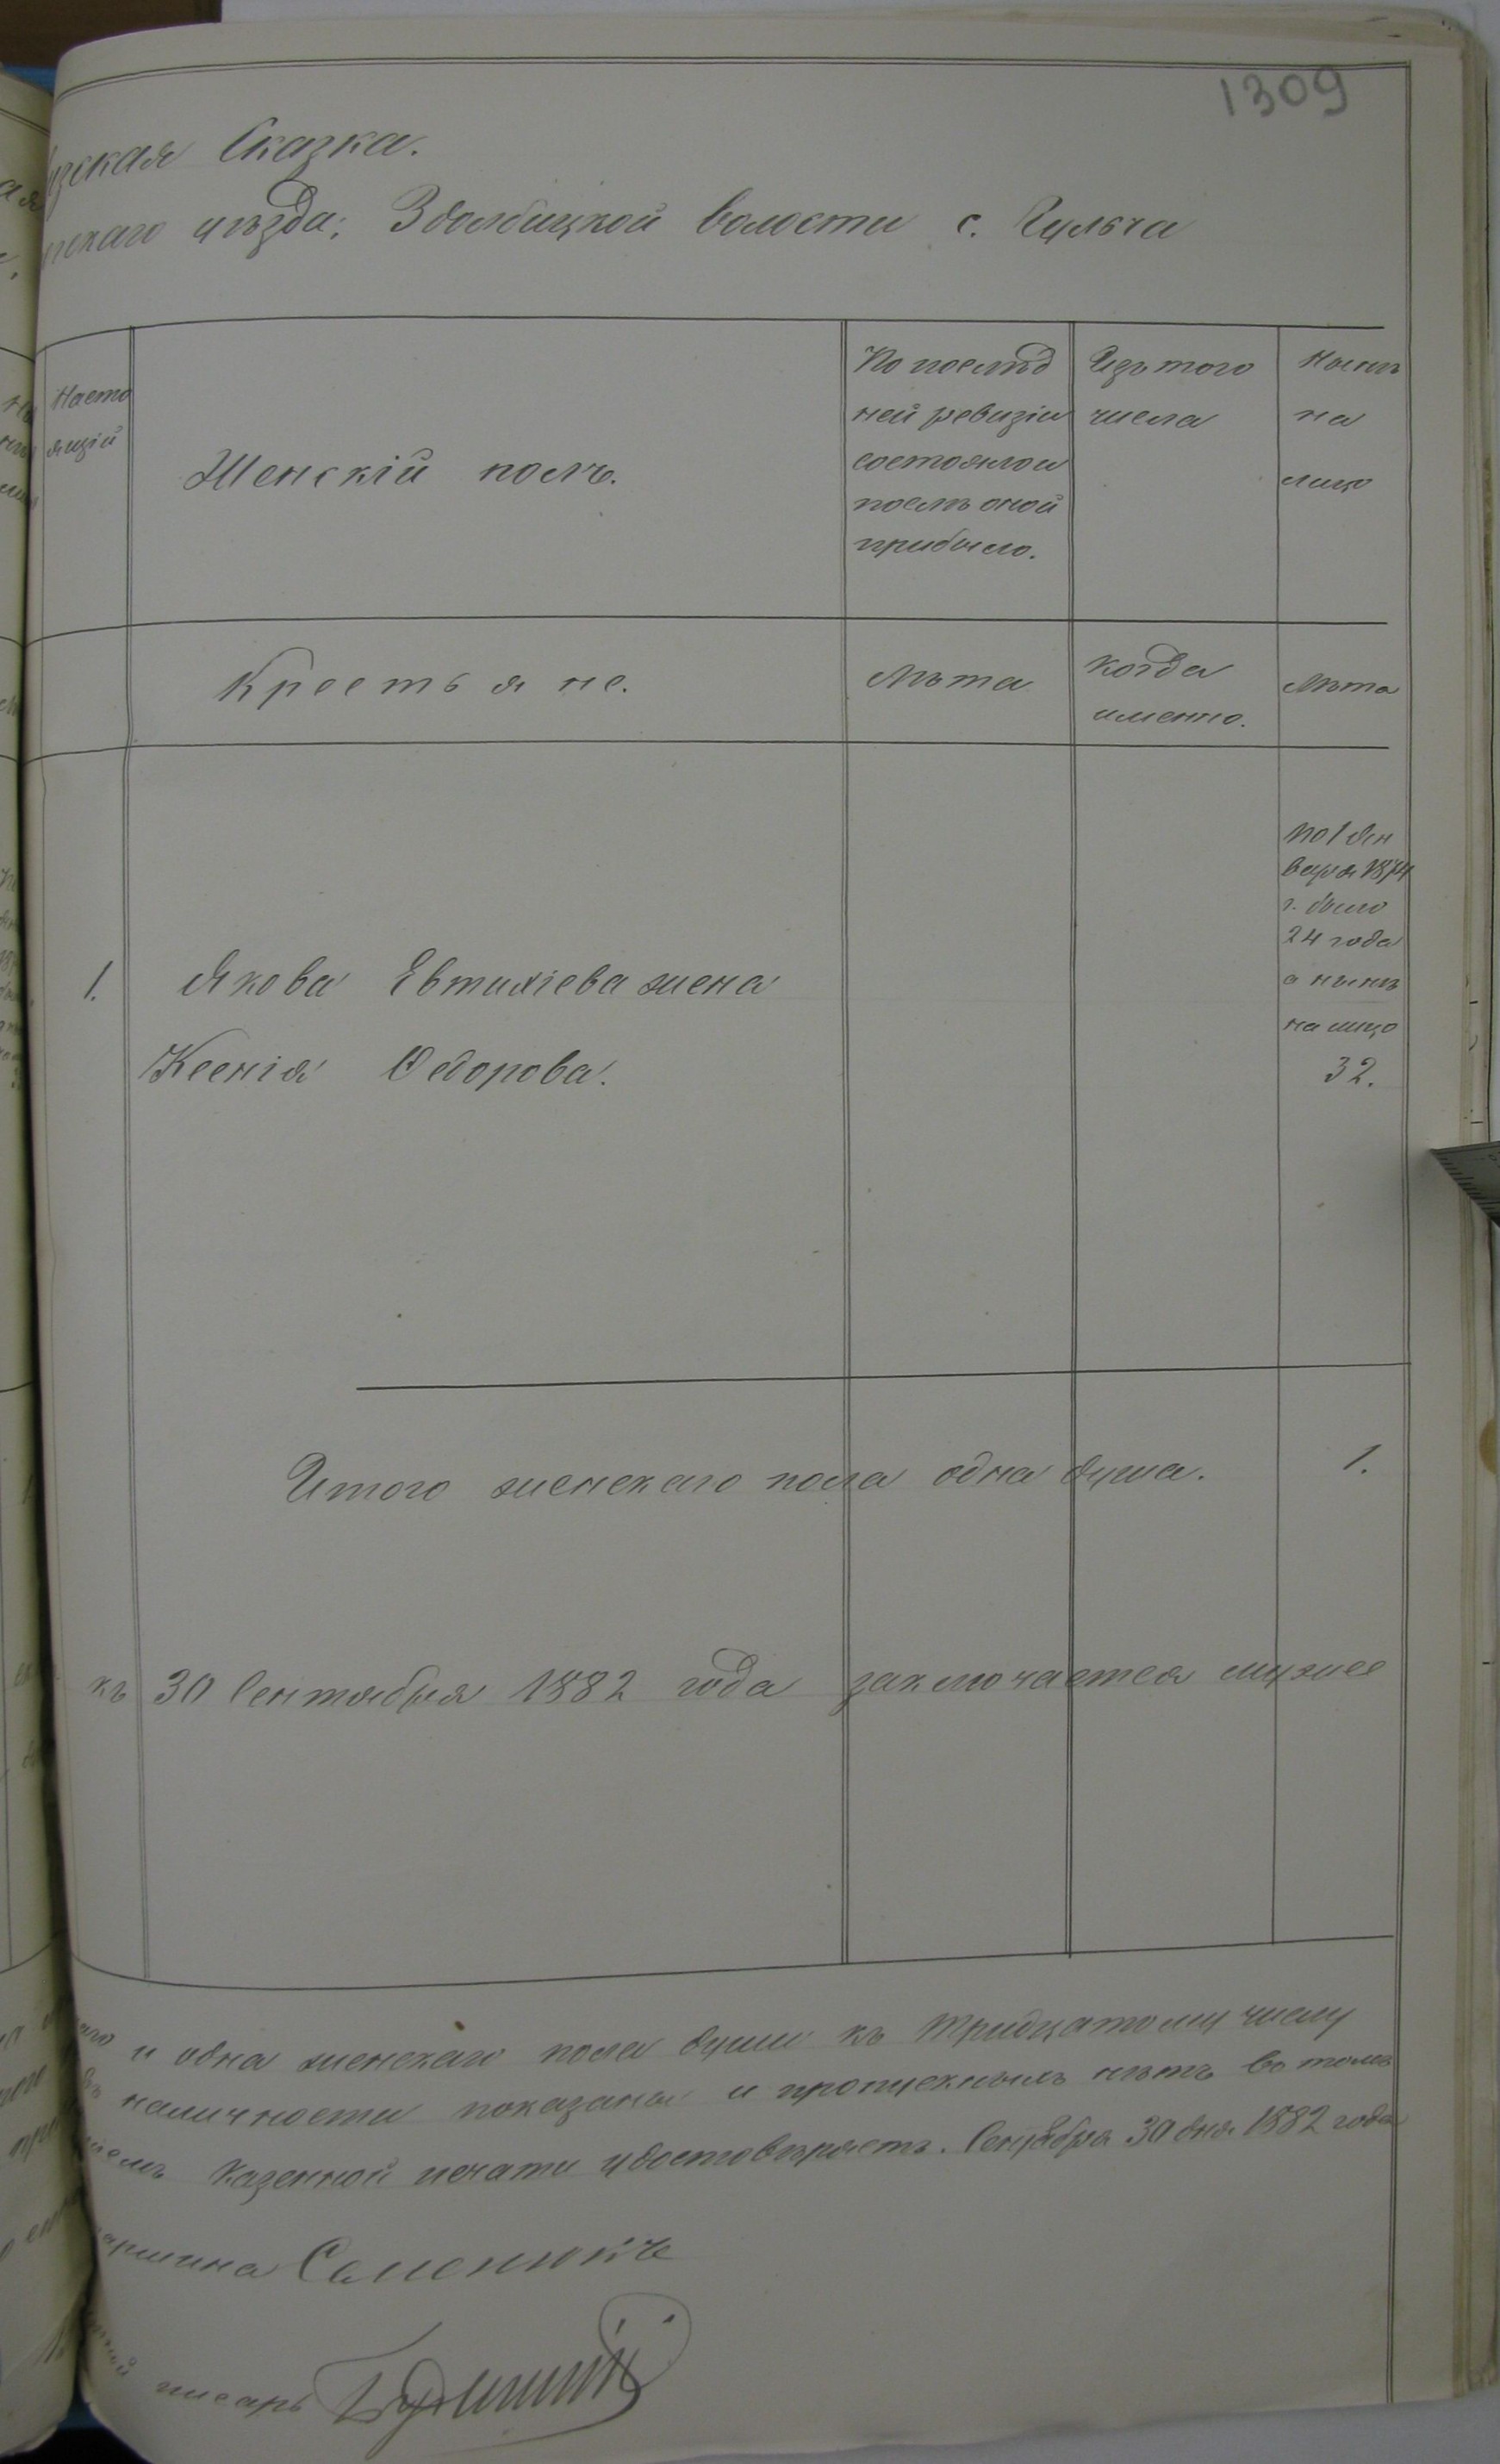 1309
изская Сказка.
уѣзда, Здолбицкой волости с. Гульча
Насто
ящій
Женскій полъ.
По послѣд
ней ревизіи
состояло и
послѣ оной
прибыло.
Изъ того
числа
Нынѣ
на
лицо
Крестьяне.
Лѣта
когда
именно.
Лѣта
1.
Якова Евтихіева жена
Ксенія Ѳедорова.
по 1 Ян
варя 1874
г. было
24 года
а нынѣ
на лицо
32.
Итого женскаго пола одна душа. 1.
къ 30 Сентября 1882 года заключается мужес
и одна женскаго пола души къ тридцатому числу
наличности показаны и пропускныхъ нѣтъ въ томъ
казенной печати удостовѣряетъ. Сентября 30 дня 1882 года
аршина Семенюкъ
писарь